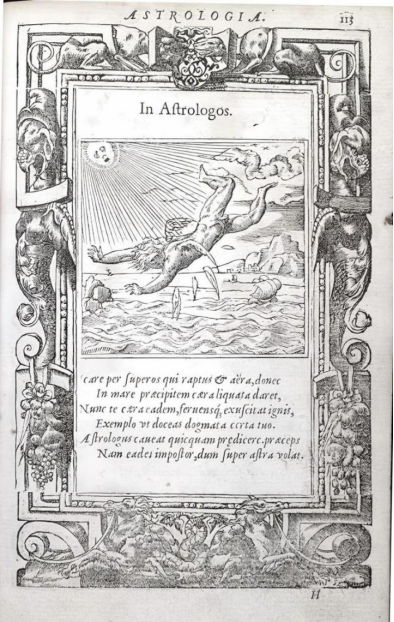 ASTROLOGIA.
113
In Aſtrologos.
care per ſuperos qui raptus & aëra, donec
In mare præcipitem cæra liquata daret,
Nunc te cæra eadem, feruensq́, exuſcitat ignis,
Exemplo vt doceas dogmata certa tuo.
Aſtrologus caueat quicquam prędicere.præceps
Nam cadet impoſtor, dum ſuper aſtra volat.
H